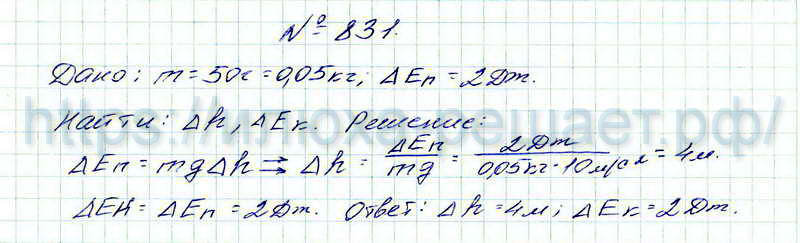 № 831.
Дано: m = 50г = 0,05кг; ΔEп = 2Дж.
Найти: Δh, ΔEк. Решение:
ΔEп = mgΔh ⇒ Δh = ΔEп/mg = 2Дж/0,05кг·10м/с² = 4м.
ΔEк = ΔEп = 2Дж. Ответ: Δh = 4м; ΔEк = 2Дж.